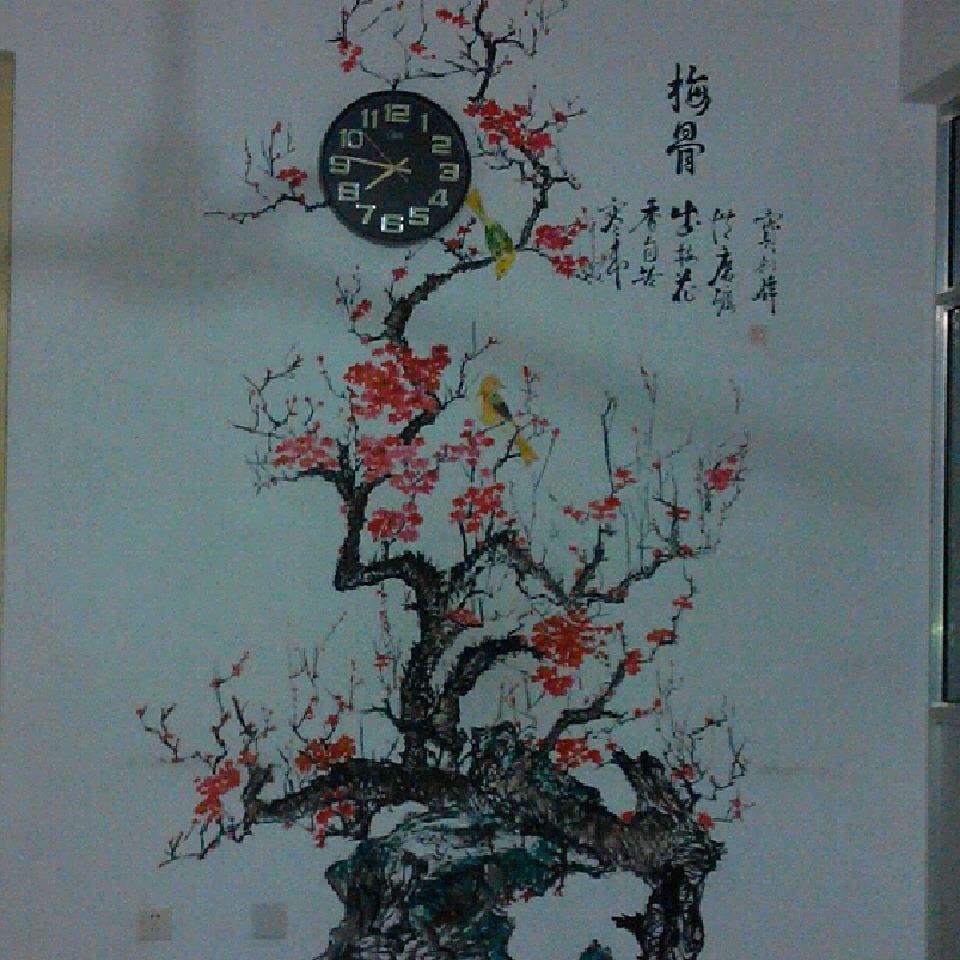 梅骨
寶劍鋒
從磨礪
出梅花
香自苦
寒來
12
1
2
3
4
5
6
7
8
9
10
11